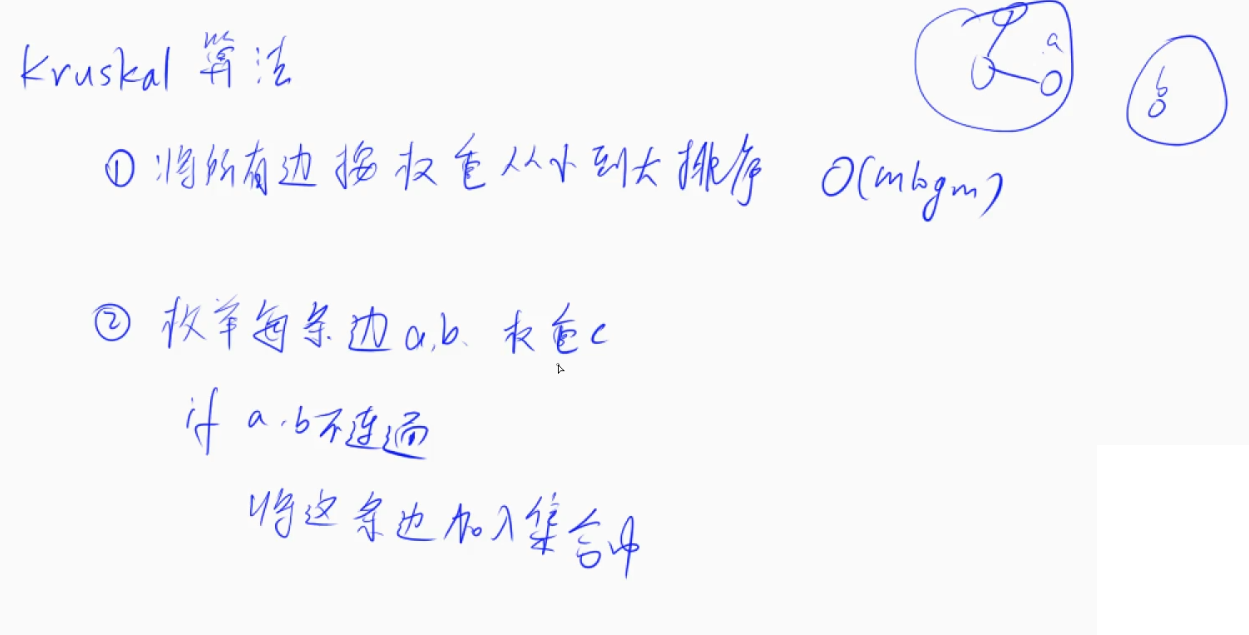 Kruskal 算法
a
b
① 将所有边按权重从小到大排序 O(mlogm)
② 枚举每条边a,b、权重c
if a,b不连通
将这条边加入集合中